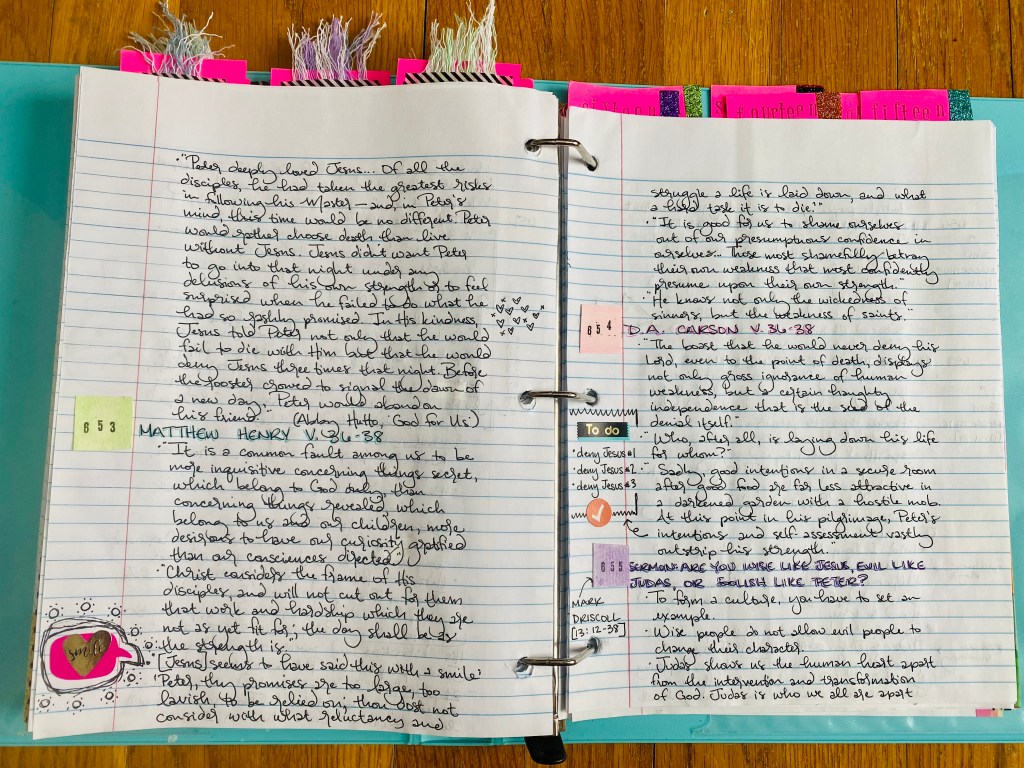 sixteen
fourteen
fifteen
• "Peter deeply loved Jesus... Of all the
disciples, he had taken the greatest risks
in following his Master — and, in Peter's
mind, this time would be no different. Peter
would rather choose death than live
without Jesus. Jesus didn't want Peter
to go into that night under any
delusions of his own strength or to feel
surprised when he failed to do what he
had so rashly promised. In His kindness,
Jesus told Peter not only that he would
fail to die with Him but that he would
deny Jesus three times that night. Before
the rooster crowed to signal the dawn of
a new day, Peter would abandon
his friend." (Abbey Hutto, God for Us)
653
MATTHEW HENRY V. 36-38
• "It is a common fault among us to be
more inquisitive concerning things secret,
which belong to God only, than
concerning things revealed, which
belong to us and our children, more
desirous to have our curiosity gratified
than our consciences directed."
• "Christ considers the frame of His
disciples, and will not cut out for them
that work and hardship which they are
not as yet fit for; the day shall be as
the strength is."
smile
• [Jesus] seems to have said this with a smile:
'Peter, thy promises are too large, too
lavish to be relied on; thou dost not
consider with what reluctancy and
struggle a life is laid down, and what
a hard task it is to die.'"
• "It is good for us to shame ourselves
out of our presumptuous confidence in
ourselves... Those most shamefully betray
their own weakness that most confidently
presume upon their own strength."
• "He knows not only the wickedness of
sinners, but the weakness of saints."
654
D.A. CARSON V. 36-38
• "The boast that he would never deny his
Lord, even to the point of death, displays
not only gross ignorance of human
weakness, but a certain haughty
independence that is the seed of the
denial itself."
To do
• deny Jesus #1
• deny Jesus #2
• deny Jesus #3
• "Who, after all, is laying down his life
for whom?"
• "Sadly, good intentions in a secure room
after good food are far less attractive in
a darkened garden with a hostile mob.
At this point in his pilgrimage, Peter's
intentions and self-assessment vastly
outstrip his strength."
655
SERMON: ARE YOU WISE LIKE JESUS, EVIL LIKE
JUDAS, OR FOOLISH LIKE PETER?
MARK
DRISCOLL
[13:12-38]
• To form a culture, you have to set an
example.
• Wise people do not allow evil people to
change their character.
• Judas shows us the human heart apart
from the intervention and transformation
of God. Judas is who we all are apart